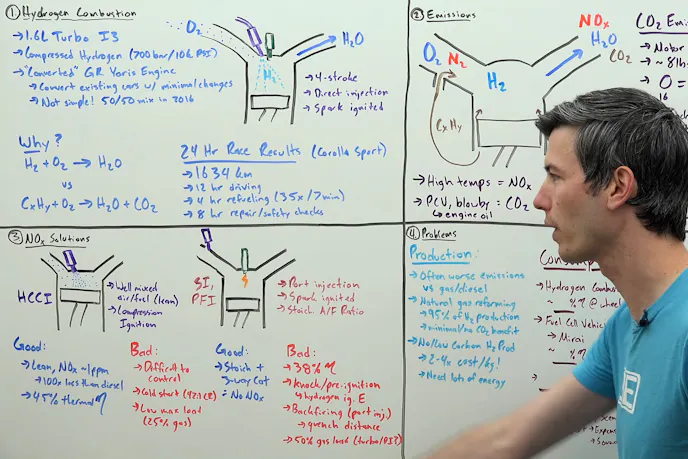 ① Hydrogen Combustion
→ 1.6L Turbo I3
→ Compressed Hydrogen (700 bar/10k PSI)
→ "Converted" GR Yaris Engine
→ Convert existing cars w/ minimal changes
→ Not simple! 50/50 mix in 2016
O₂
H₂
H₂O
→ 4-stroke
→ Direct injection
→ Spark ignited
Why?
H₂ + O₂ → H₂O
vs
CxHy + O₂ → H₂O + CO₂
24 Hr Race Results (Corolla Sport)
→ 1634 km
→ 12 hr driving
→ 4 hr refueling (35x/7min)
→ 8 hr repair/safety checks
② Emissions
O₂ N₂
H₂
NOx
H₂O
CO₂
CxHy
→ High temps = NOx
→ PCV, blowby = CO₂
↳ engine oil
CO₂
→ Motor
→ ~ 8lb
→ O =
16
③ NOx Solutions
HCCI
→ Well mixed
air/fuel (lean)
→ Compression
Ignition
SI,
PFI
→ Port injection
→ Spark ignited
→ Stoich. A/F Ratio
Good:
→ Lean, NOx ~1ppm
→ 100x less than diesel
→ 45% thermal η
Bad:
→ Difficult to
control
→ Cold start
→ Low max load
(25% gas)
Good:
→ Stoich +
3-way cat
∴ No NOx
Bad:
→ 38% η
→ Knock/pre-ignition
↳ hydrogen ig. E
→ Backfiring (port inj.)
→ quench distance
→ 50% gas load (turbo/PI?)
④ Problems
Production:
→ Often worse emissions
vs gas/diesel
→ Natural gas reforming
→ 95% of H₂ production
→ minimal/no CO₂ benefit
→ No/low Carbon H₂ Prod
→ 2-4x cost/kg!
→ Need lots of energy
→ Hydrogen Combus
→ ~ %η @ wheel
→ Fuel Cell Vehicl
→ Mirai
→ ~ %η